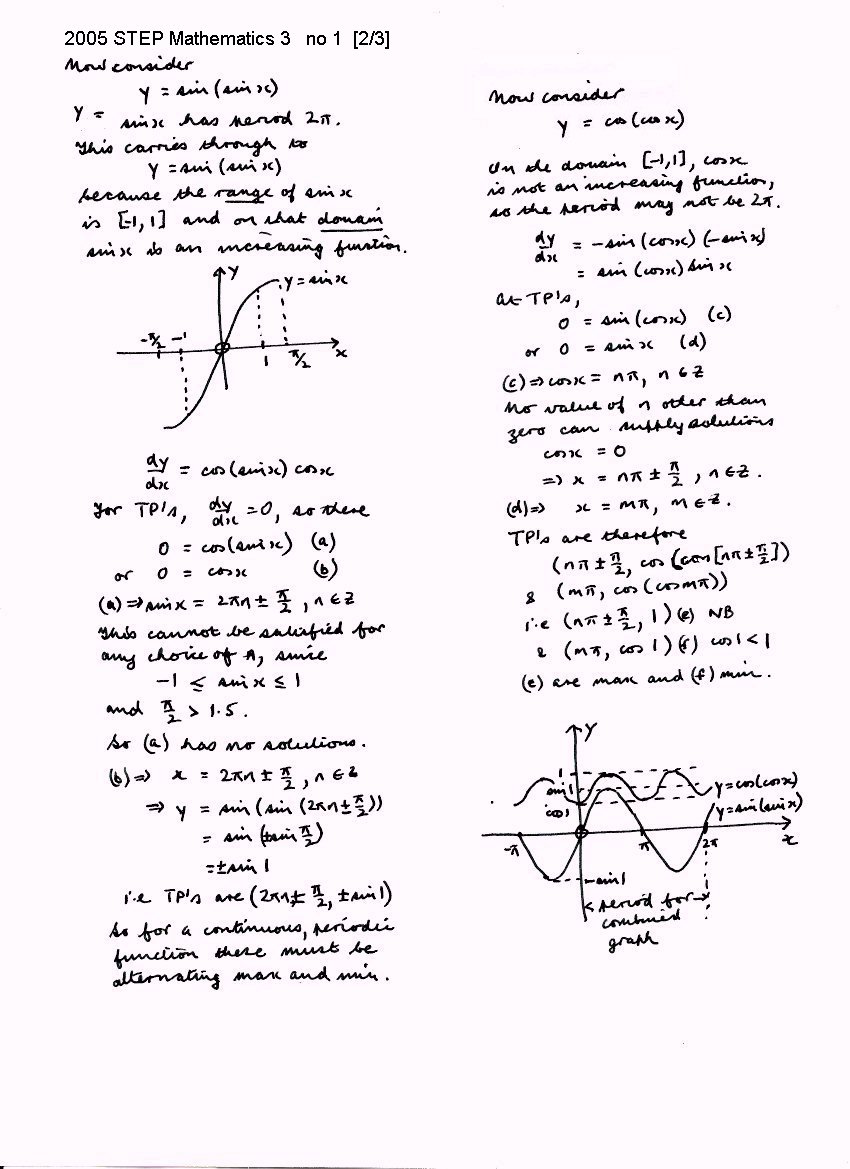 2005 STEP Mathematics 3 no 1 [2/3]
Now consider
y = sin (sin x)
y = sin x has period 2π.
This carries through to
y = sin (sin x)
because the range of sin x
is [-1, 1] and on that domain
sin x is an increasing function.
y
y = sin x
-π/2 -1
1 π/2 x
dy/dx = cos(sin x) cos x
For TP's, dy/dx = 0, so there
0 = cos(sin x) (a)
or 0 = cos x (b)
(a) ⇒ sin x = 2πn ± π/2, n ∈ Z
This cannot be satisfied for
any choice of n, since
-1 ≤ sin x ≤ 1
and π/2 > 1.5.
So (a) has no solutions.
(b) ⇒ x = 2πn ± π/2, n ∈ Z
⇒ y = sin (sin (2πn ± π/2))
= sin (± sin π/2)
= ± sin 1
i.e TP's are (2πn ± π/2, ± sin 1)
So for a continuous, periodic
function these must be
alternating max and min.
Now consider
y = cos (cos x)
On the domain [-1,1], cos x
is not an increasing function,
so the period may not be 2π.
dy/dx = -sin (cos x) (-sin x)
= sin (cos x) sin x
At TP's,
0 = sin (cos x) (c)
or 0 = sin x (d)
(c) ⇒ cos x = nπ, n ∈ Z
No value of n other than
zero can supply solutions
cos x = 0
⇒ x = nπ ± π/2, n ∈ Z.
(d) ⇒ x = mπ, m ∈ Z.
TP's are therefore
(nπ ± π/2, cos (cos [nπ ± π/2])
& (mπ, cos (cos mπ))
i.e (nπ ± π/2, 1) (e) NB
& (mπ, cos 1) (f) cos 1 < 1
(e) are max and (f) min.
y
1
sin 1
cos 1
y = cos(cos x)
y = sin(sin x)
-π π 2π x
-sin 1
period for
combined
graph